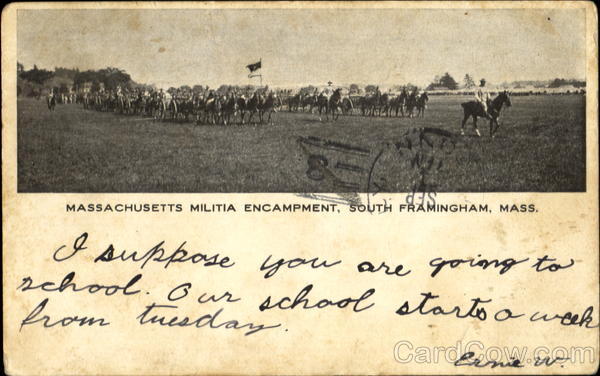 MASSACHUSETTS MILITIA ENCAMPMENT, SOUTH FRAMINGHAM, MASS.
I suppose you are going to
school. Our school starts a week
from tuesday.
Ernie W.
CardCow.com